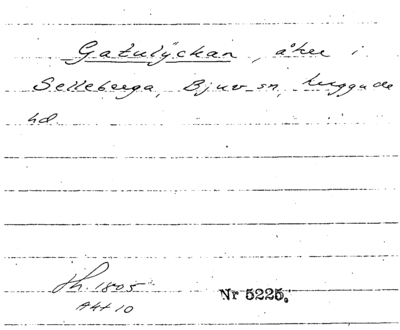 Gatulyckan, åker i
Selleberga, Bjuv sn, Luggude
hd
Akt 10
Nr 5225.